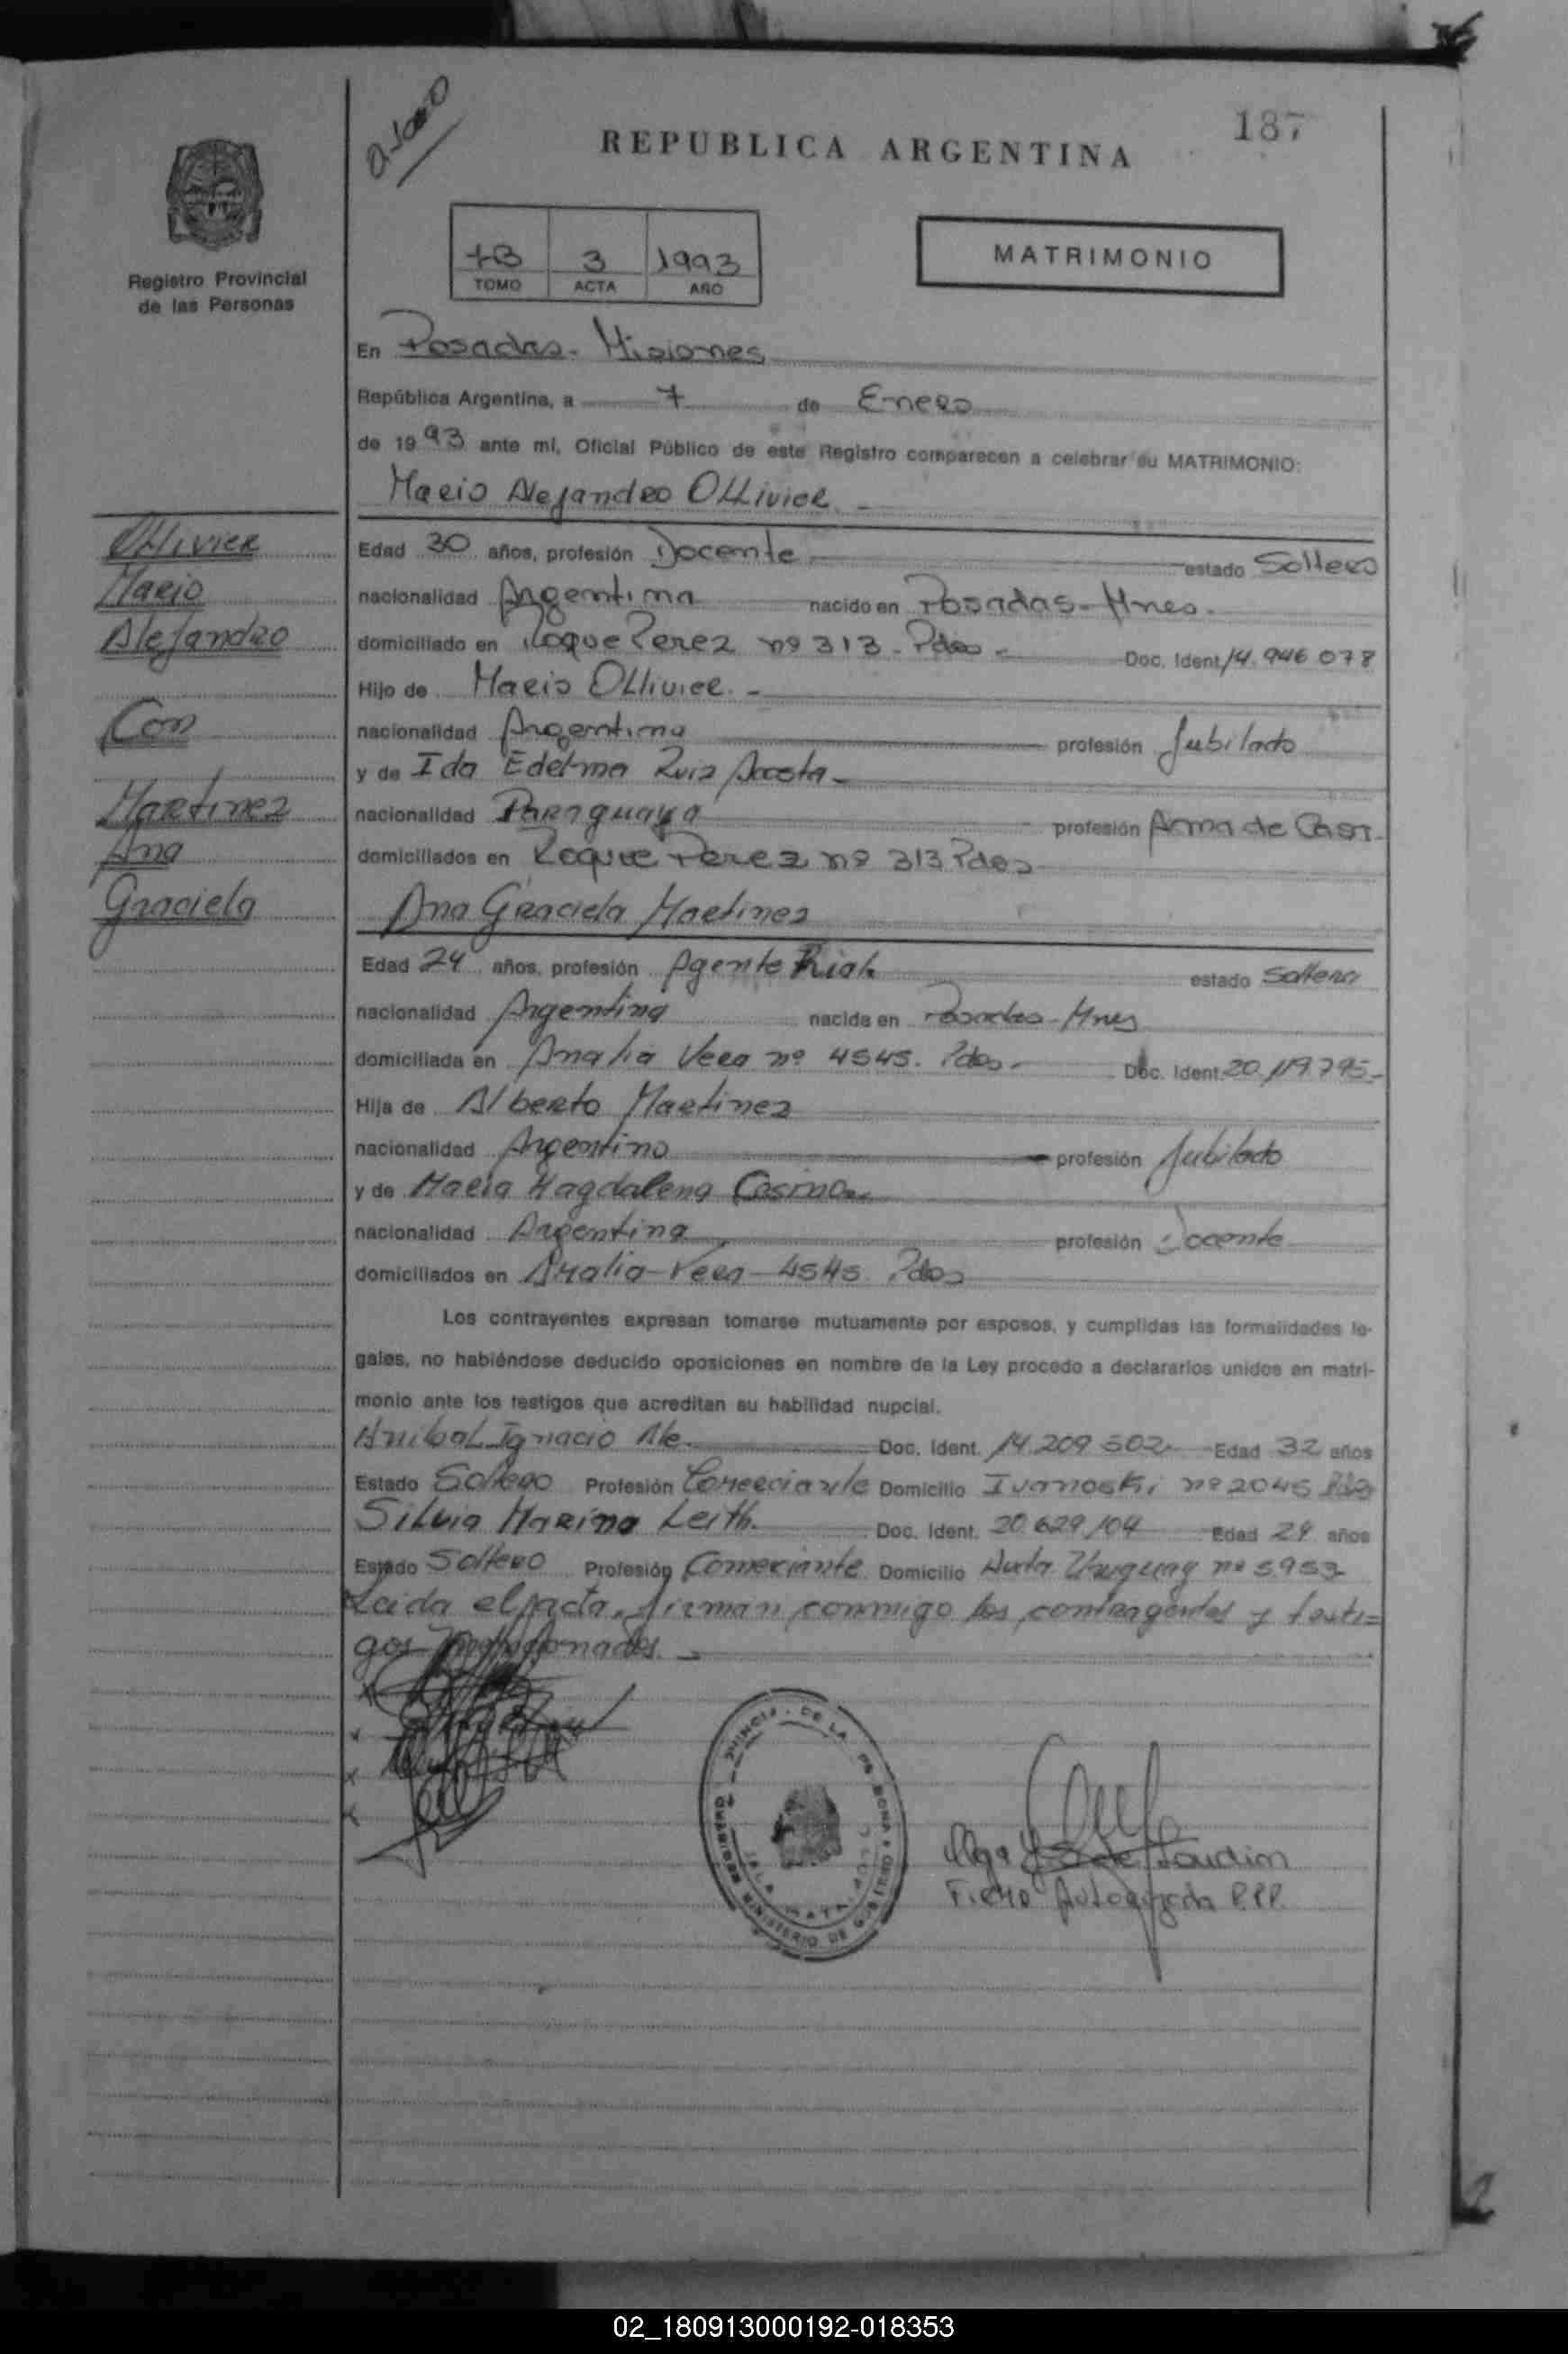 187
REPUBLICA ARGENTINA
Registro Provincial
de las Personas
3 1993
TOMO ACTA AÑO
MATRIMONIO
En Posadas - Misiones
República Argentina, a 7 de Enero
de 1993 ante mí, Oficial Público de este Registro comparecen a celebrar su MATRIMONIO:
Mario Alejandro Ollivier -
Ollivier
Mario
Alejandro
Con
Martinez
Ana
Graciela
Edad 30 años, profesión Docente estado Soltero
nacionalidad Argentina nacido en Posadas - Mnes.
domiciliado en Roque Perez nº 313 - Pdas - Doc. Ident. 14.946 078
Hijo de Mario Ollivier -
nacionalidad Argentina profesión Jubilado
y de Ida Edelma Ruiz Acosta -
nacionalidad Paraguaya profesión Ama de Casa
domiciliados en Roque Perez nº 313 Pdas
Ana Graciela Martinez
Edad 24 años, profesión Agente estado Soltera
nacionalidad Argentina nacida en Posadas - Mnes
domiciliada en Analia Vera nº 4545. Pdas - Doc. Ident. 20.119.795 -
Hija de Alberto Martinez
nacionalidad Argentino profesión Jubilado
y de Maria Magdalena
nacionalidad Argentina profesión Docente
domiciliados en Analia - Vera - 4545 Pdas
Los contrayentes expresan tomarse mutuamente por esposos, y cumplidas las formalidades le-
gales, no habiéndose deducido oposiciones en nombre de la Ley procedo a declararlos unidos en matri-
monio ante los testigos que acreditan su habilidad nupcial.
Anibal Ignacio Ale - Doc. Ident. 14.209 502 Edad 32 años
Estado Soltero Profesión Comerciante Domicilio Ivanoski nº 2045 Pdas
Silvia Marina Leith. Doc. Ident. 20.629.104 Edad 24 años
Estado Soltero Profesión Comerciante Domicilio Avda. Uruguay nº 5953
Leida el acta, firman conmigo los contrayentes y testi=
gos mencionados. -
Olga de
Autorizada R.P.P.
02_180913000192-018353